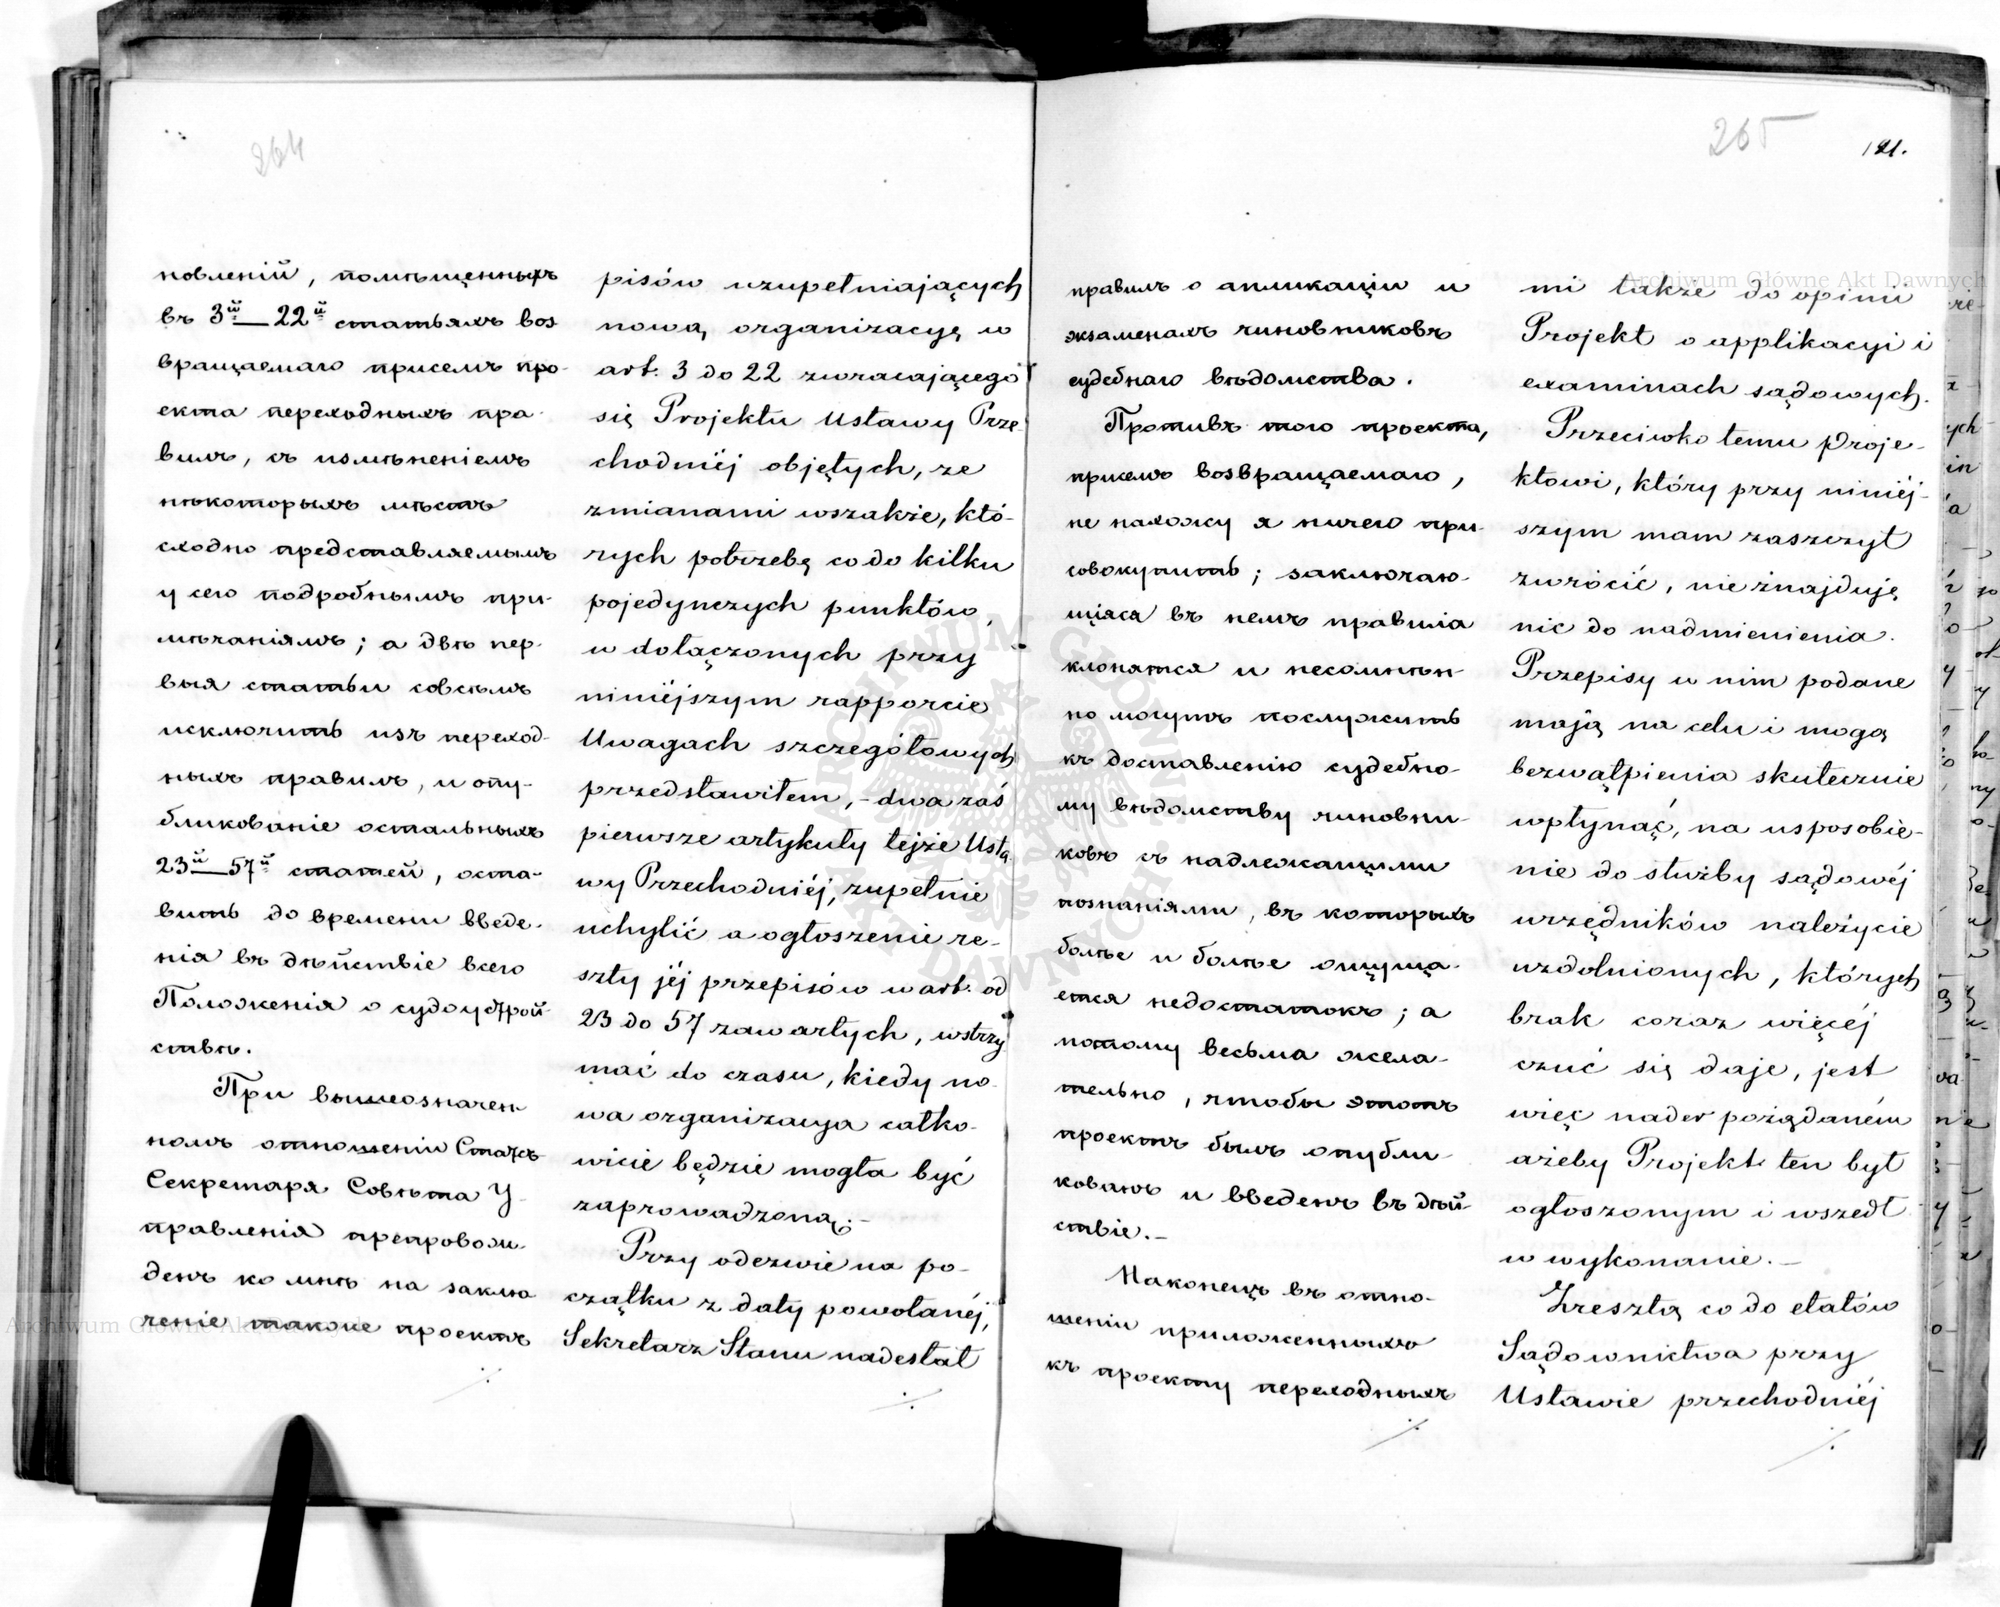 264
новленій, помѣщенныхъ
въ 3й—22й статьяхъ воз
вращаемаго присемъ про-
екта переходныхъ пра-
вилъ, съ измѣненіемъ
нѣкоторыхъ мѣстъ
сходно представляемымъ
у сего подробнымъ при-
мѣчаніямъ; а двѣ пер-
выя статьи совсѣмъ
исключить изъ переход-
ныхъ правилъ, и опу-
бликованіе остальныхъ
23й—57й статей, оста-
вить до времени введе-
нія въ дѣйствіе всего
Положенія о судоустрой
ствѣ.
При вышеозначен
номъ отношеніи Статсъ
Секретаря Совѣта У-
правленія препровож-
денъ ко мнѣ на заклю
ченіе также проектъ
./.
pisów uzupełniających
nową organizacyę w
art. 3 do 22 zwracającego
się Projektu Ustawy Prze-
chodniéj objętych, ze
zmianami wszakże, któ-
rych potrzebę co do kilku
pojedynczych punktów,
w dołączonych przy
niniéjszym rapporcie
Uwagach szczegółowych
przedstawiłem, - dwa zaś
pierwsze artykuły tejże Usta
wy Przechodniéj, zupełnie
uchylić a ogłoszenie re-
szty jéj przepisów w art. od
23 do 57 zawartych, wstrzy
mać do czasu, kiedy no-
wa organizacya całko-
wicie będzie mogła być
zaprowadzoną.-
Przy odezwie na po-
czątku z daty powołanéj,
Sekretarz Stanu nadesłał
./.
265
121.
правилъ о апликаціи и
экзаменахъ чиновниковъ
судебнаго вѣдомства.
Противъ того проекта,
присемъ возвращаемаго,
не нахожу я ничего при-
совокупить; заключаю-
щіяся въ немъ правила
клонятся и несомнѣн-
но могутъ послужить
къ доставленію судебно-
му вѣдомству чиновни-
ковъ съ надлежащими
познаніями, въ которыхъ
болѣе и болѣе ощуща-
ется недостатокъ; а
потому весьма жела-
тельно, чтобы этотъ
проектъ былъ опубли-
кованъ и введенъ въ дѣй-
ствіе.-
Наконецъ въ отно-
шеніи приложенныхъ
къ проекту переходныхъ
./.
mi także do opinii
Projekt o applikacyi i
examinach sądowych.
Przeciwko temu Proje-
ktowi, który przy niniéj-
szym mam zaszczyt
zwrócić, nie znajduję
nic do nadmienienia.
Przepisy w nim podane
mają na celu i mogą
bezwątpienia skutecznie
wpłynąć, na usposobie-
nie do służby sądowéj
urzędników należycie
uzdolnionych, których
brak coraz więcéj
czuć się daje, jest
więc nader pożądaném
ażeby Projekt ten był
ogłoszonym i wszedł
w wykonanie.-
Zresztą co do etatów
Sądownictwa przy
Ustawie przechodniéj
./.
Archiwum Główne Akt Dawnych